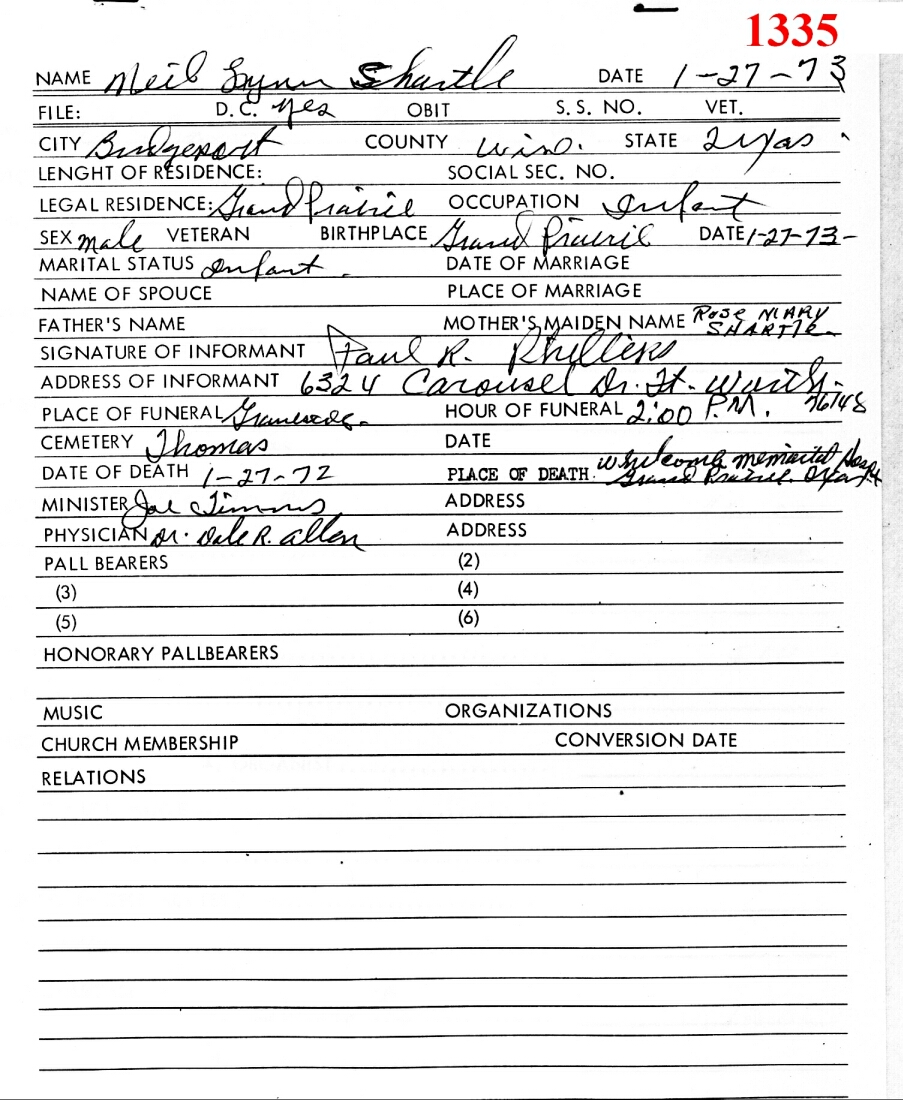 1335
NAME Neil Lynn Shartle DATE 1-27-73
FILE: D.C. yes OBIT S.S. NO. VET.
CITY Bridgeport COUNTY Wise. STATE Texas
LENGHT OF RESIDENCE: SOCIAL SEC. NO.
LEGAL RESIDENCE: Grand Prairie OCCUPATION Infant
SEX male VETERAN BIRTHPLACE Grand Prairie DATE 1-27-73-
MARITAL STATUS Infant. DATE OF MARRIAGE
NAME OF SPOUCE PLACE OF MARRIAGE
FATHER'S NAME MOTHER'S MAIDEN NAME Rose MARY
SHARTLE
SIGNATURE OF INFORMANT Paul R. Phillips
ADDRESS OF INFORMANT 6324 Carousel Dr. Ft. Worth.
PLACE OF FUNERAL Graveside. HOUR OF FUNERAL 2:00 P.M. 76148
CEMETERY Thomas DATE
DATE OF DEATH 1-27-72 PLACE OF DEATH. Whitcomb memorial Hospt
Grand Prairie. Texas
MINISTER Joe Timms ADDRESS
PHYSICIAN Dr. Dale R. Allen ADDRESS
PALL BEARERS (2)
(3) (4)
(5) (6)
HONORARY PALLBEARERS
MUSIC ORGANIZATIONS
CHURCH MEMBERSHIP CONVERSION DATE
RELATIONS